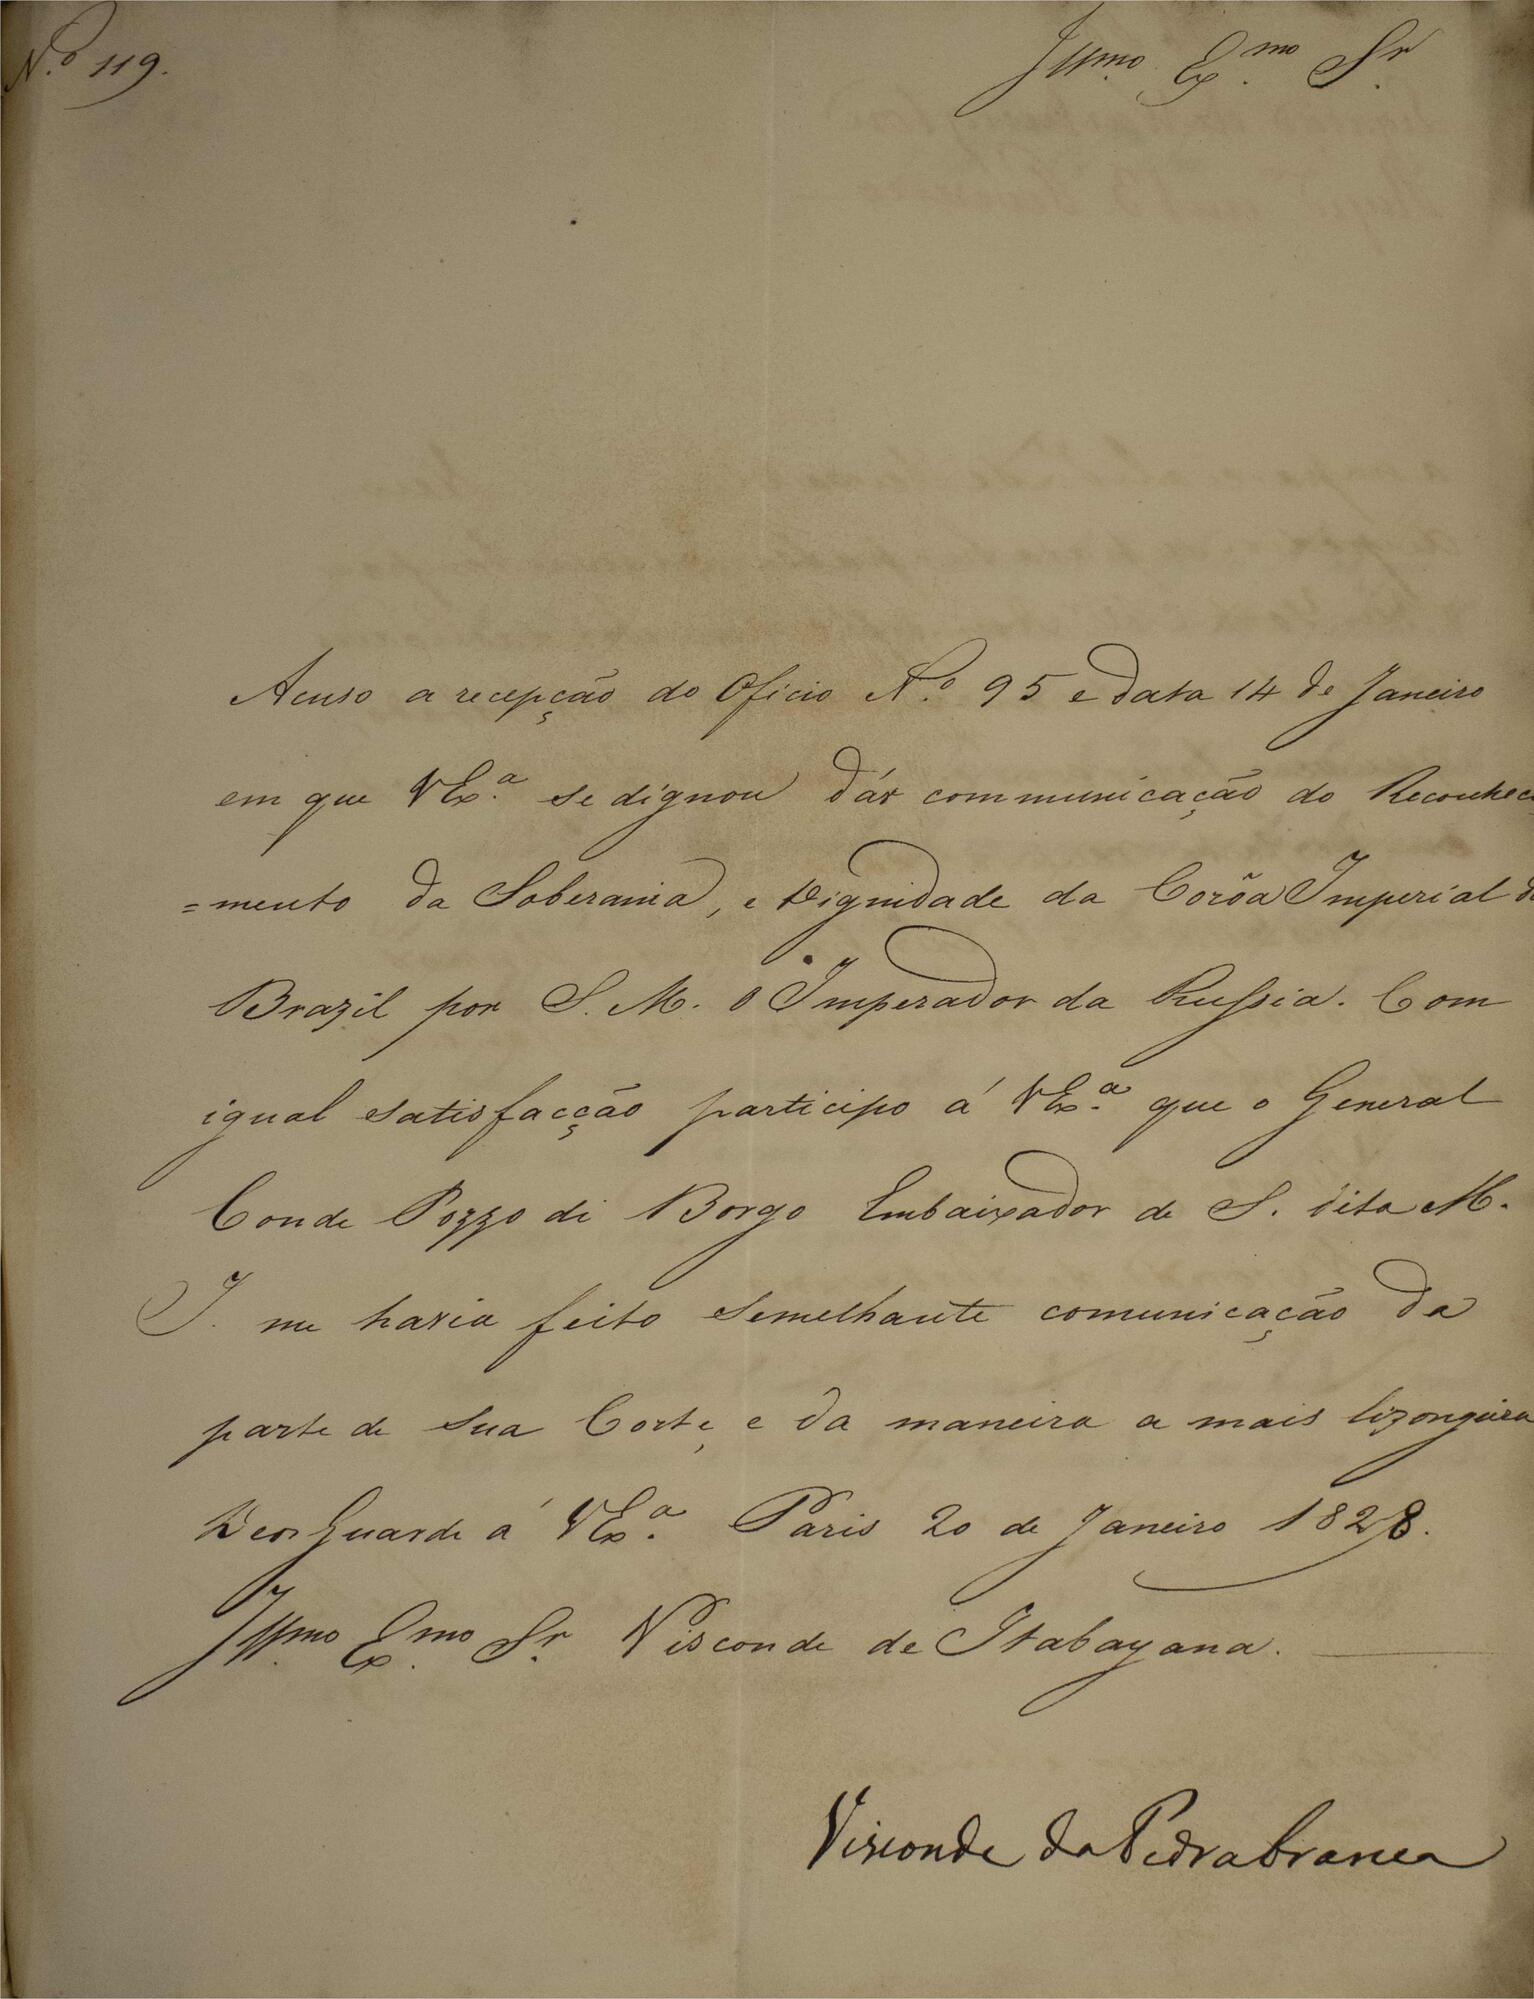 N.º 119.
Illmo. Ex.mo Sr.
Acuso a recepção do Oficio N.º 95 e data 14 de Janeiro
em que VEx.ª se dignou dár communicação do Reconheci
=mento da Soberania, e Dignidade da Corõa Imperial do
Brazil por S. M. o Imperador da Russia. Com
igual satisfacção participo á VEx.ª que o General
Conde Pozzo di Borgo Embaixador de S. dita M.
I. me havia feito semelhante comunicação da
parte de sua Corte, e da maneira a mais lizongeira
Deos Guarde á VEx.ª Paris 20 de Janeiro 1828.
Illmo. Ex.mo Sr. Visconde de Itabayana.
Visconde da Pedra branca